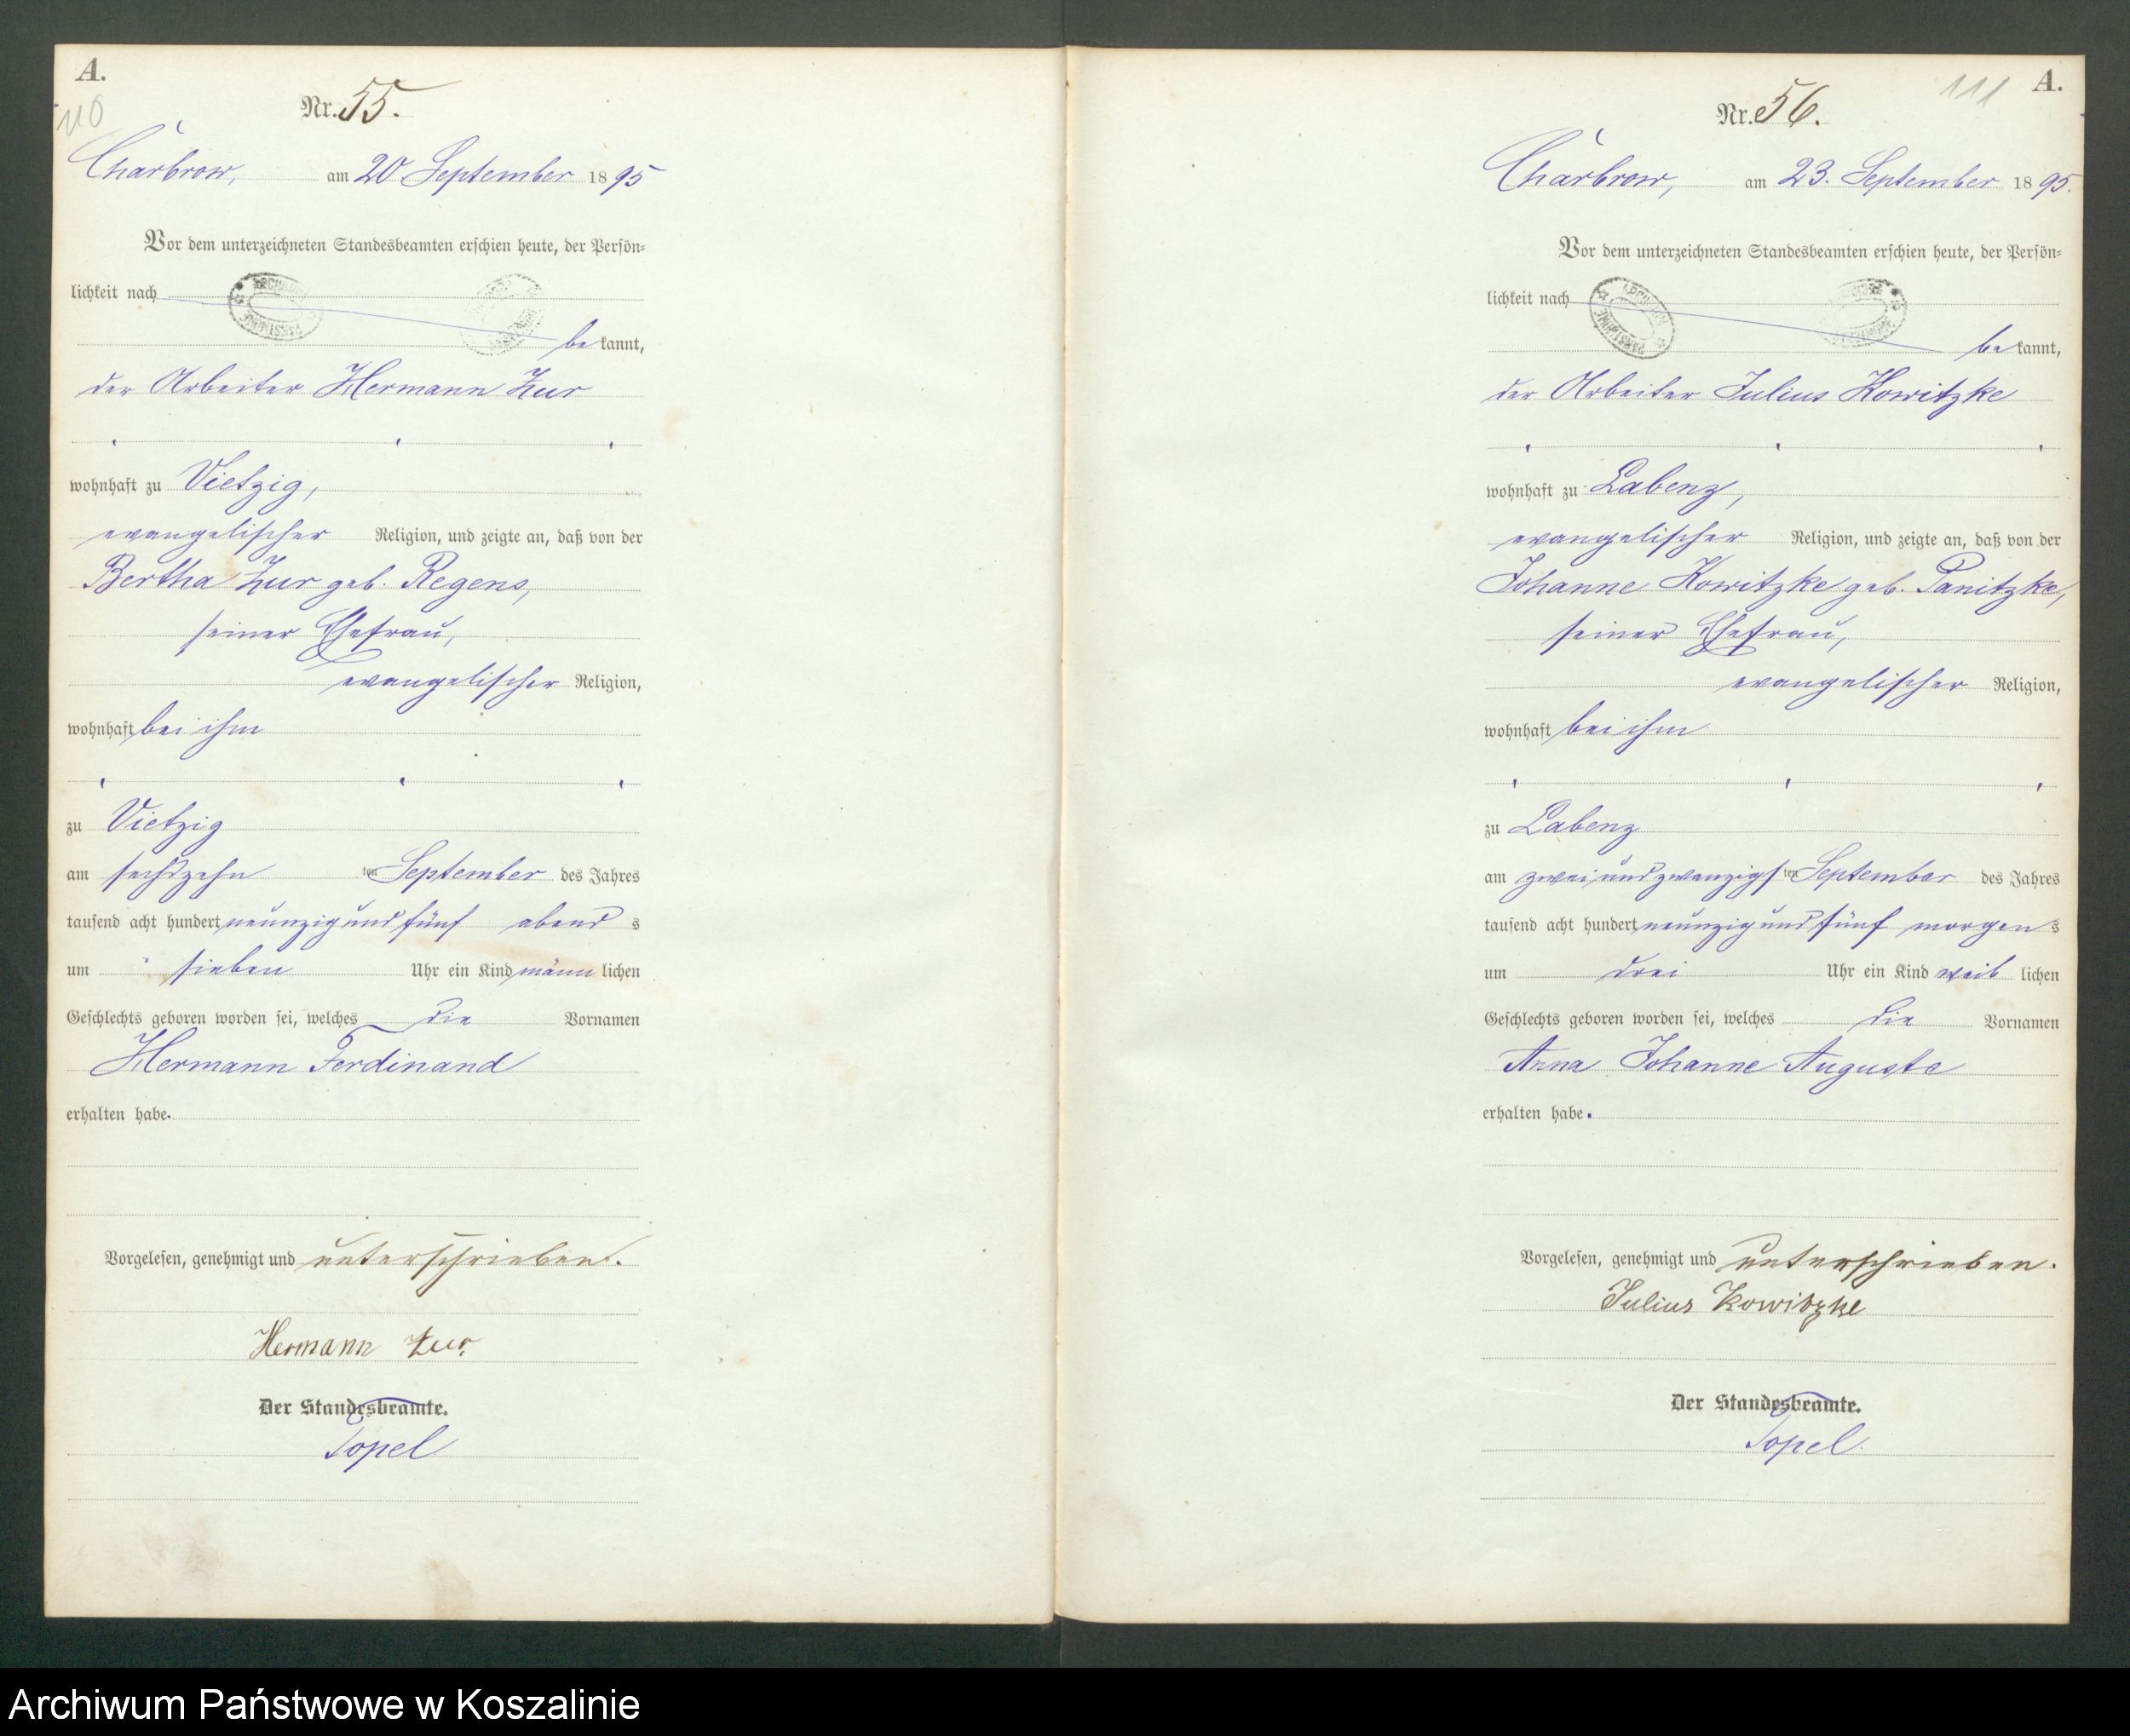 A.
110
Nr. 55.
Charbrow, am 20 September 1895
Vor dem unterzeichneten Standesbeamten erschien heute, der Persön=
lichkeit nach
be kannt,
der Arbeiter Hermann Zur
wohnhaft zu Vietzig,
evangelischer Religion, und zeigte an, daß von der
Bertha Zur geb. Regens,
seiner Ehefrau,
evangelischer Religion,
wohnhaft bei ihm
zu Vietzig
am sechszehn ten September des Jahres
tausend acht hundert neunzig und fünf abend s
um sieben Uhr ein Kind männ lichen
Geschlechts geboren worden sei, welches die Vornamen
Hermann Ferdinand
erhalten habe.
Vorgelesen, genehmigt und unterschrieben.
Hermann Zur.
Der Standesbeamte.
Topel
111
A.
Nr. 56.
Charbrow, am 23. September 1895.
Vor dem unterzeichneten Standesbeamten erschien heute, der Persön=
lichkeit nach
be kannt,
der Arbeiter Julius Kowitzke
wohnhaft zu Labenz,
evangelischer Religion, und zeigte an, daß von der
Johanne Kowitzke geb. Panitzke,
seiner Ehefrau,
evangelischer Religion,
wohnhaft bei ihm
zu Labenz
am zwei und zwanzigs ten September des Jahres
tausend acht hundert neunzig und fünf morgen s
um drei Uhr ein Kind weib lichen
Geschlechts geboren worden sei, welches die Vornamen
Anna Johanne Auguste
erhalten habe.
Vorgelesen, genehmigt und unterschrieben.
Julius Kowitzke
Der Standesbeamte.
Topel.
Archiwum Państwowe w Koszalinie